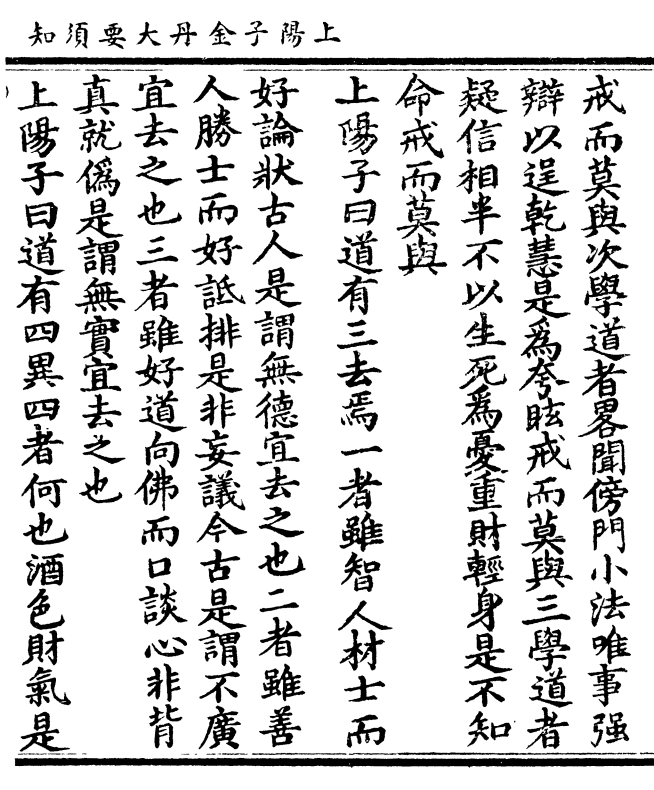 上陽子金丹大要須知
戒而莫與次學道者畧聞傍門小法唯事强
辯以逞乾慧是爲夸眩戒而莫與三學道者
疑信相半不以生死爲憂重財輕身是不知
命戒而莫與
上陽子曰道有三去焉一者雖智人材士而
好論狀古人是謂無德宜去之也二者雖善
人勝士而好詆排是非妄議今古是謂不廣
宜去之也三者雖好道向佛而口談心非背
真就僞是謂無實宜去之也
上陽子曰道有四異四者何也酒色財氣是